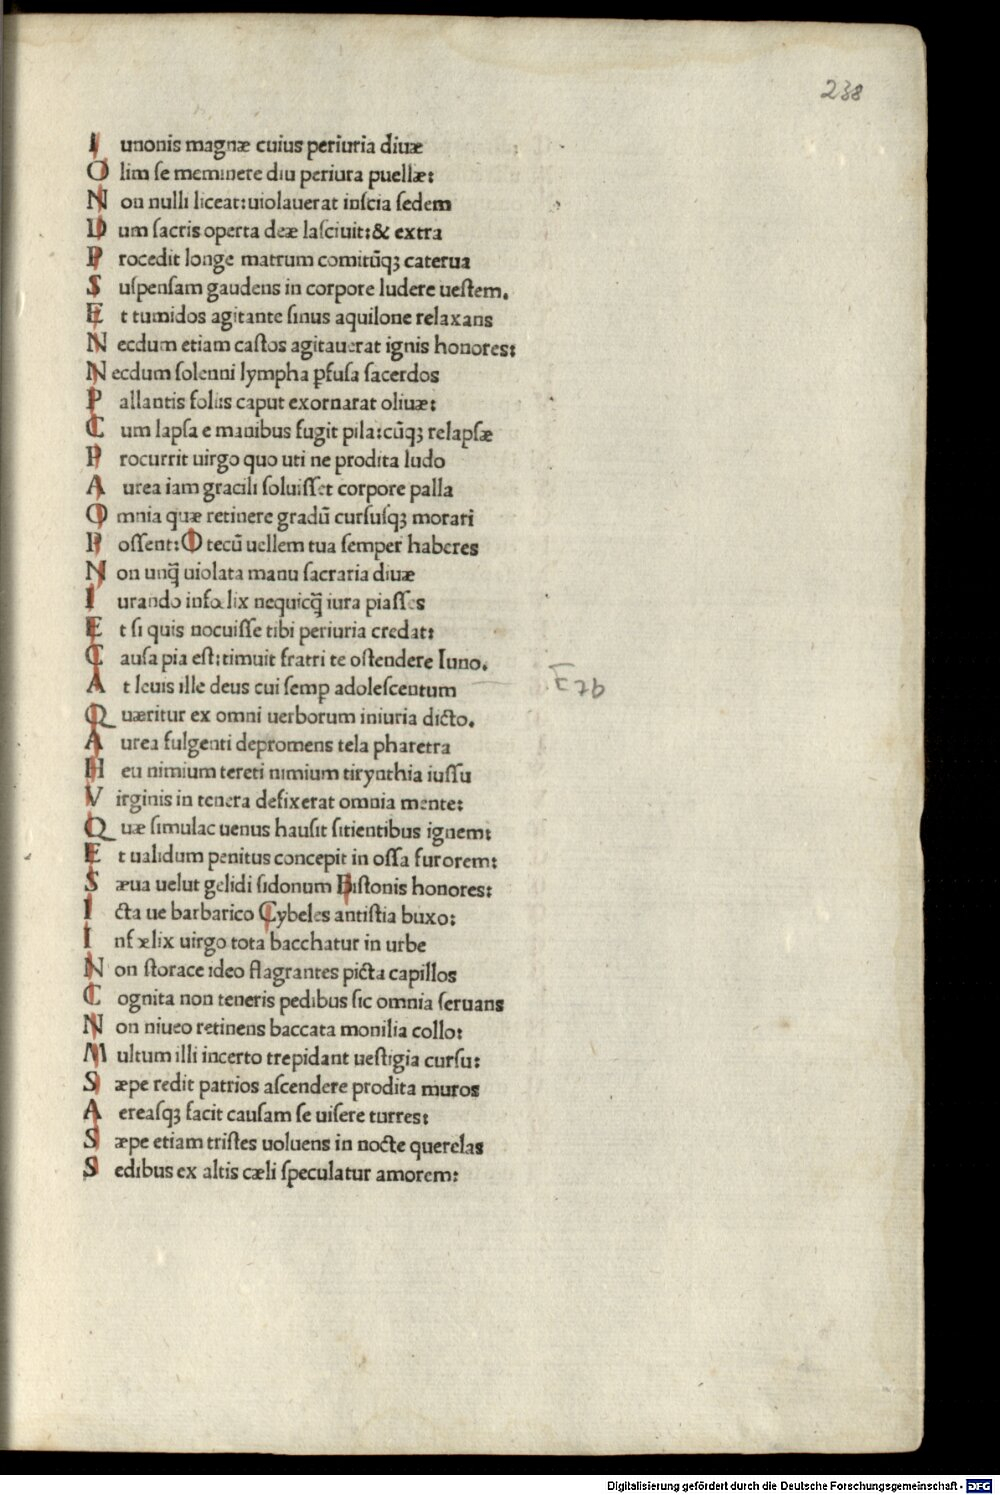 238
Iunonis magnæ cuius periuria diuæ
Olim se meminere diu periura puellæ:
Non nulli liceat: uiolauerat inscia sedem
Dum sacris operta deæ lasciuit: & extra
Procedit longe matrum comitūqꝫ caterua
Suspensam gaudens in corpore ludere uestem.
Et tumidos agitante sinus aquilone relaxans
Necdum etiam castos agitauerat ignis honores:
Necdum solenni lympha ꝑfusa sacerdos
Pallantis foliis caput exornarat oliuæ:
Cum lapsa e manibus fugit pila: cūqꝫ relapsæ
Procurrit uirgo quo uti ne prodita ludo
Aurea iam gracili soluisset corpore palla
Omnia quæ retinere gradū cursusqꝫ morari
Possent: O tecū uellem tua semper haberes
Non unq̃ uiolata manu sacraria diuæ
Iurando infœlix nequicq̃ iura piasses
Et si quis nocuisse tibi periuria credat:
Causa pia est: timuit fratri te ostendere Iuno.
At leuis ille deus cui semꝑ adolescentum E7b
Quæritur ex omni uerborum iniuria dicto.
Aurea fulgenti depromens tela pharetra
Heu nimium tereti nimium tirynthia iussu
Virginis in tenera defixerat omnia mente:
Quæ simulac uenus hausit sitientibus ignem:
Et ualidum penitus concepit in ossa furorem:
Sæua uelut gelidi sidonum Bistonis honores:
Icta ue barbarico Cybeles antistia buxo:
Infælix uirgo tota bacchatur in urbe
Non storace ideo flagrantes picta capillos
Cognita non teneris pedibus sic omnia seruans
Non niueo retinens baccata monilia collo:
Multum illi incerto trepidant uestigia cursu:
Sæpe redit patrios ascendere prodita muros
Aereasqꝫ facit causam se uisere turres:
Sæpe etiam tristes uoluens in nocte querelas
Sedibus ex altis cæli speculatur amorem:
Digitalisierung gefördert durch die Deutsche Forschungsgemeinschaft - DFG